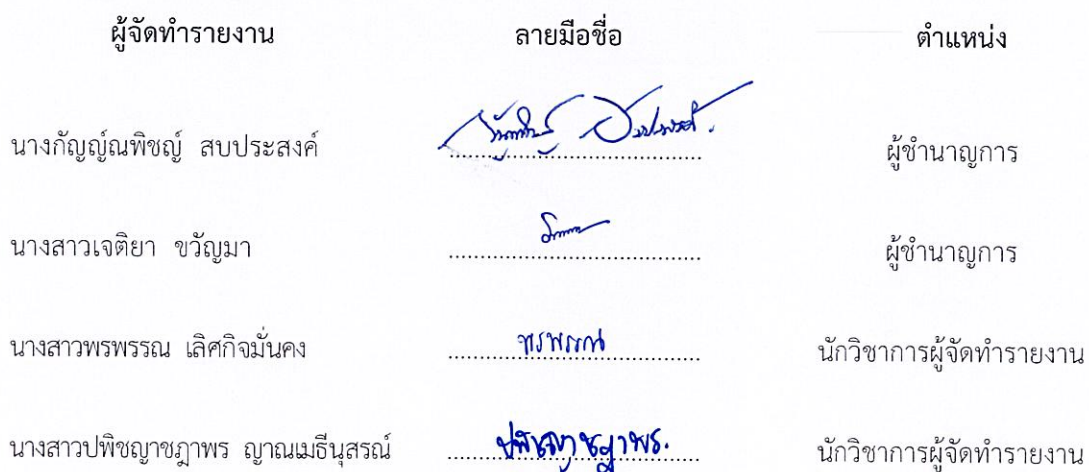 ผู้จัดทำรายงาน ลายมือชื่อ ตำแหน่ง
นางกัญญ์ณพิชญ์ สบประสงค์ ผู้ชำนาญการ
นางสาวเจติยา ขวัญมา ผู้ชำนาญการ
นางสาวพรพรรณ เลิศกิจมั่นคง พรพรรณ นักวิชาการผู้จัดทำรายงาน
นางสาวปพิชญาชฎาพร ญาณเมธีนุสรณ์ ปพิชญาชฎาพร. นักวิชาการผู้จัดทำรายงาน